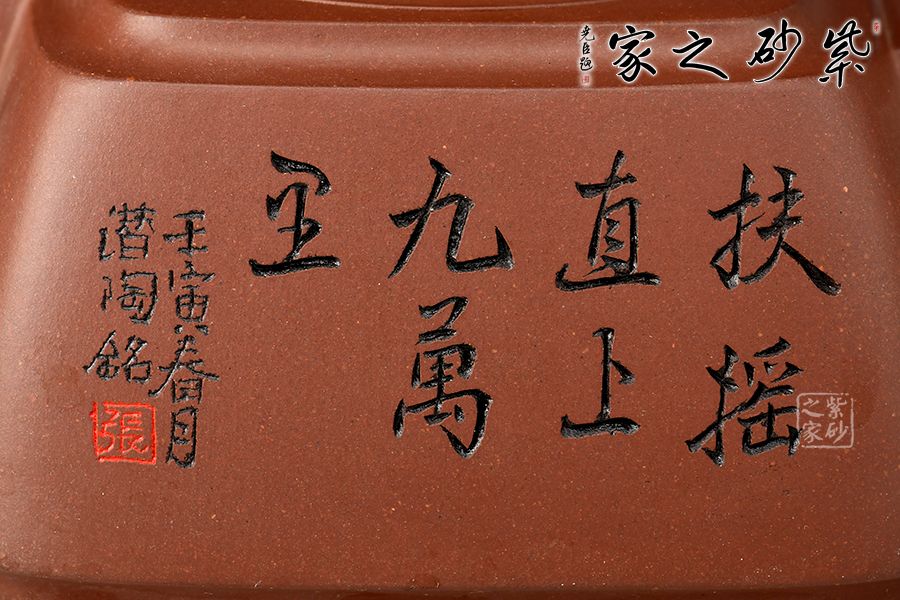 紫砂之家
堯臣題
扶摇
直上
九萬
里
壬寅春月
潜陶銘
張
紫砂
之家